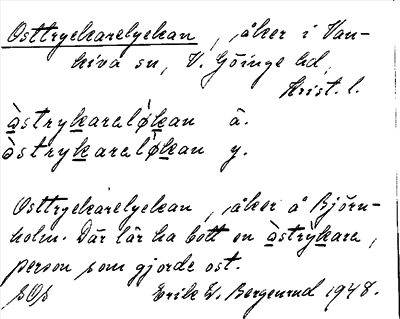 Osttryckarelyckan, åker i Van-
kiva sn, V. Göinge hd,
Krist. l.
àstrykaralø̀kan ä.
àstrykaralø̀kan y.
Osttryckarelyckan, åker å Björn-
holm. Där lär ha bott en àstrỳkara,
person som gjorde ost.
Erik W. Bergenrud 1948.